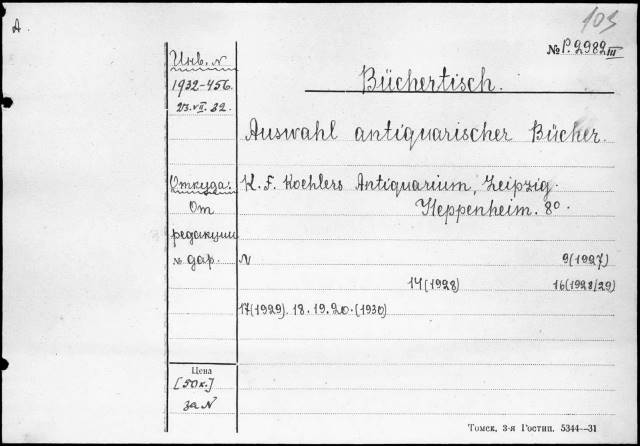 A
103
№ P. 2982 III
Инв. N
1932-456.
23.VII.32.
Büchertisch.
Auswahl antiquarischer Bücher.
Откуда:
От
редакции
дар.
K. F. Koehlers Antiquarium, Leipzig.
Heppenheim. 8º.
N 9(1927)
14(1928) 16(1928/29)
17(1929). 18. 19. 20. (1930)
Цена
[50к.]
за N
Томск, 3-я Гостип. 5344—31